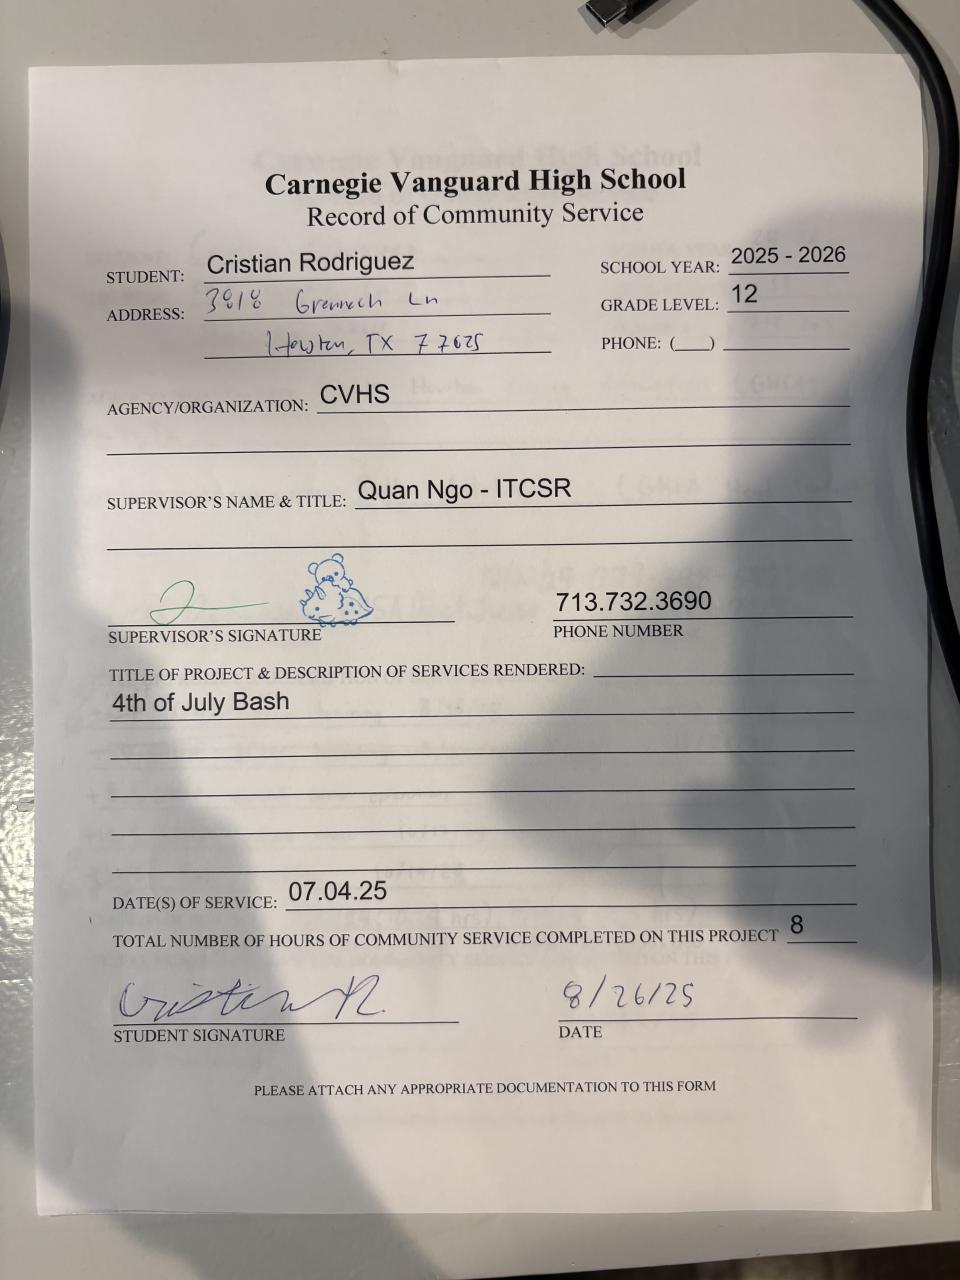 Carnegie Vanguard High School
Record of Community Service
STUDENT: Cristian Rodriguez
SCHOOL YEAR: 2025 - 2026
ADDRESS: 3818 Ln
GRADE LEVEL: 12
TX
PHONE: (___)
AGENCY/ORGANIZATION: CVHS
SUPERVISOR'S NAME & TITLE: Quan Ngo - ITCSR
713.732.3690
SUPERVISOR'S SIGNATURE
PHONE NUMBER
TITLE OF PROJECT & DESCRIPTION OF SERVICES RENDERED:
4th of July Bash
DATE(S) OF SERVICE: 07.04.25
TOTAL NUMBER OF HOURS OF COMMUNITY SERVICE COMPLETED ON THIS PROJECT 8
Cristian R.
8/26/25
STUDENT SIGNATURE
DATE
PLEASE ATTACH ANY APPROPRIATE DOCUMENTATION TO THIS FORM